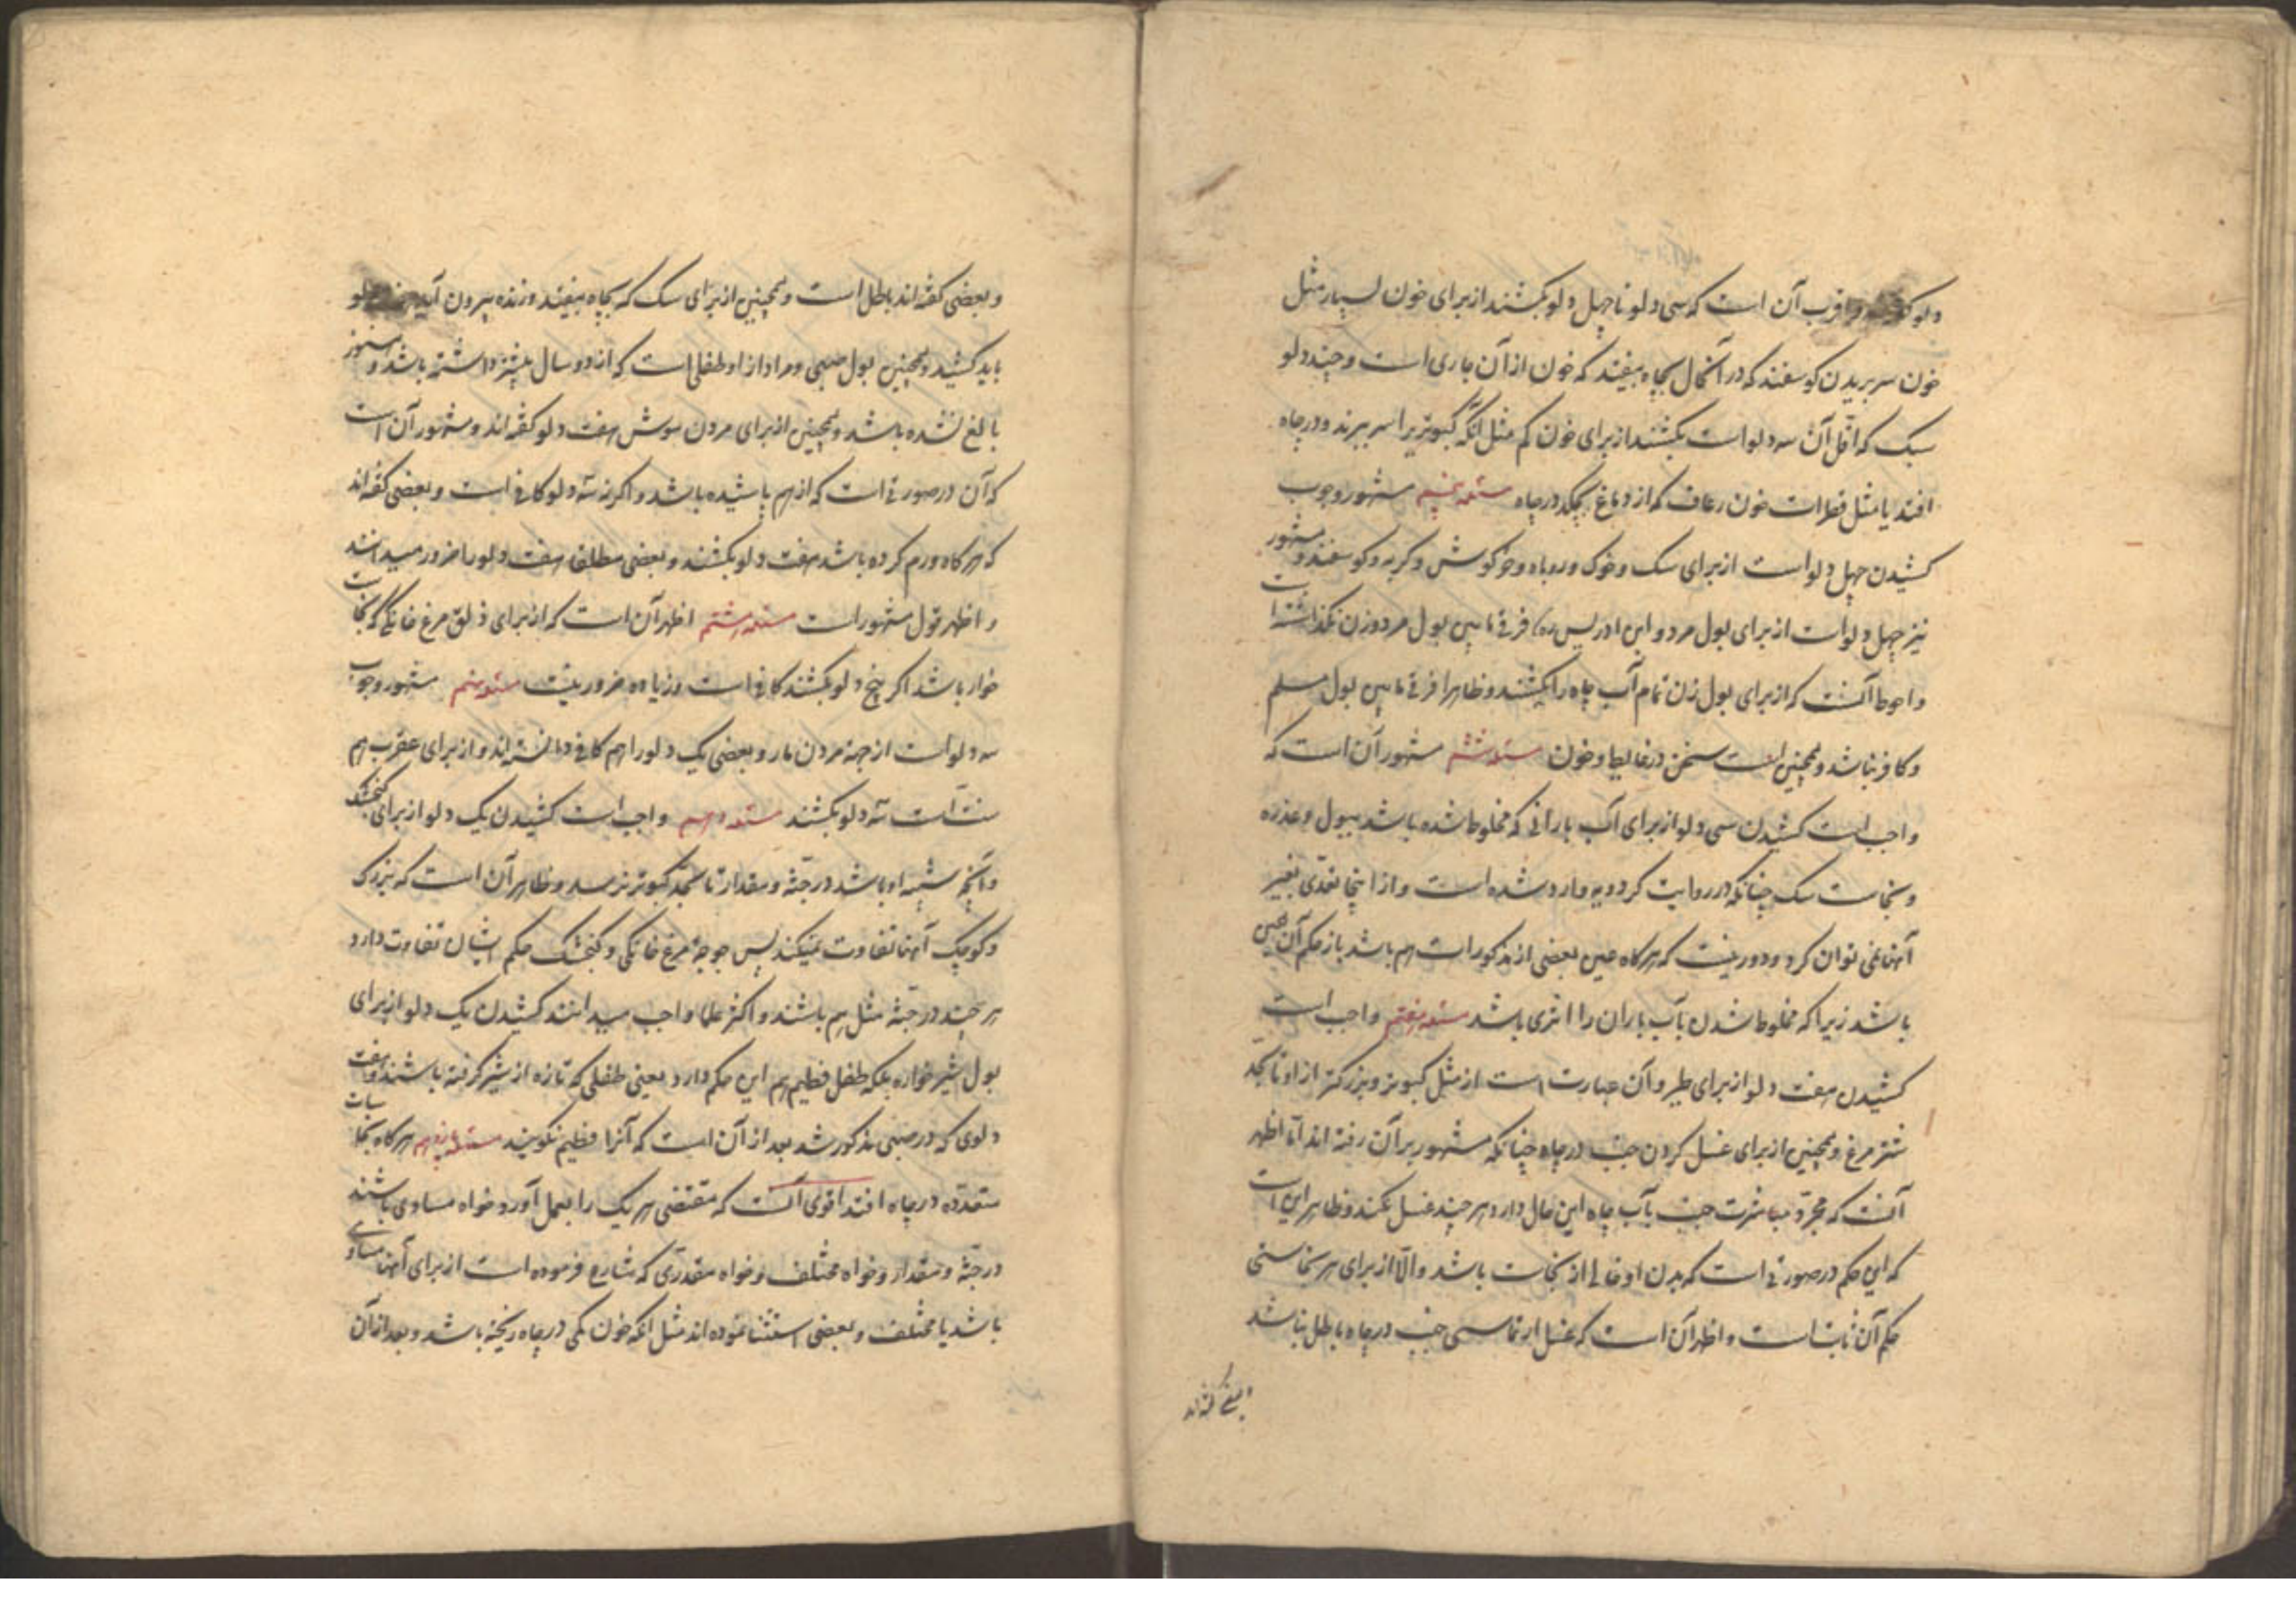 دلو و اقرب آن است که سی دلو تا چهل دلو بکشند از برای خون بسیار مثل
خون سر بریدن کوسفند که در آنحال بچاه بیفتد که خون از آن جاری است و چند دلو
سبک که اقل آن سه دلو است بکشند از برای خون کم مثل آنکه کبوتریرا سر ببرند و در چاه
افتد یا مثل قطرات خون رعاف که از دماغ بچکد در چاه مسئله پنجم مشهور وجوب
کشیدن چهل دلو است از برای سک و خوک و روباه و خرکوش و کربه و کوسفند و مشهور
نیز چهل دلو است از برای بول مرد و ابن ادریس ره فرقی مابین بول مرد و زن نکذاشته است
و احوط آنست که از برای بول زن تمام آب چاه را بکشند و ظاهرا فرقی مابین بول مسلم
و کافر نباشد و همچنین است سخن در غایط و خون مسئله ششم مشهور آن است که
واجب است کشیدن سی دلو از برای آب بارانی که مخلوط شده باشد ببول و عذره
و نجاست سک چنانکه در روایت کردویه وارد شده است و از اینجا تعدی بغیر
آنها نمی توان کرد و دور نیست که هرکاه عین بعضی از مذکورات هم باشد باز حکم آن همین
باشد زیرا که مخلوط شدن بآب باران را اثری باشد مسئله هفتم واجب است
کشیدن هفت دلو از برای طیر و آن عبارت است از مثل کبوتر و بزرکتر از او تا بحد
شتر مرغ و همچنین از برای غسل کردن جنب در چاه چنانکه مشهور بر آن رفته اند اما اظهر
آنست که مجرد مباشرت جنب بآب چاه این حال دارد هر چند غسل نکند و ظاهر این است
که این حکم در صورتی است که بدن او خالی از نجاست باشد و الا از برای هر نجاستی
حکم آن ثابت است و اظهر آن است که غسل ارتماسی جنب در چاه باطل نباشد
و بعضی کفته اند
و بعضی کفته اند باطل است و همچنین از برای سک که بچاه بیفتد و زنده بیرون آید دلو
باید کشید و همچنین بول صبی و مراد از او طفلی است که از دو سال بیشتر داشته باشد و هنوز
بالغ نشده باشد و همچنین از برای مردن موش هفت دلو کفته اند و مشهور آن است
که آن در صورتی است که از هم پاشیده باشد و اکر نه سه دلو کافی است و بعضی کفته اند
که هر کاه ورم کرده باشد هفت دلو بکشند و بعضی مطلقا هفت دلو را ضرور میدانند
و اظهر قول مشهور است مسئله هشتم اظهر آن است که از برای ذلق مرغ خانکی که نجاست
خوار باشد اکر پنج دلو بکشند کافی است و زیاده ضرور نیست مسئله نهم مشهور وجوب
سه دلو است از جهة مردن مار و بعضی یک دلو را هم کافی دانسته اند و از برای عقرب هم
سنت است سه دلو بکشند مسئله دهم واجب است کشیدن یک دلو از برای کنجشک
و آنچه شبیه او باشد در جثه و مقدار تا بحد کبوتر نرسد و ظاهر آن است که بزرک
و کوچک آنها تفاوت نمیکند پس جوجه مرغ خانکی و کنجشک حکم ایشان تفاوت دارد
هر چند در جثه مثل هم باشند و اکثر علما واجب میدانند کشیدن یک دلو از برای
بول شیر خواره بلکه طفل فطیم هم این حکم دارد یعنی طفلی که تازه از شیر کرفته باشند و هفت
دلوی که در صبی مذکور شد بعد از آن است که آنرا فطیم نکویند مسئله یازدهم هر کاه نجاسات
متعدده در چاه افتد اقوی آنست که مقتضی هر یک را بعمل آورد خواه مساوی باشند
در جثه و مقدار و خواه مختلف و خواه مقدری که شارع فرموده است از برای آنها مساوی
باشد یا مختلف و بعضی استثنا نموده اند مثل آنکه خون کمی در چاه ریخته باشد و بعد از آن